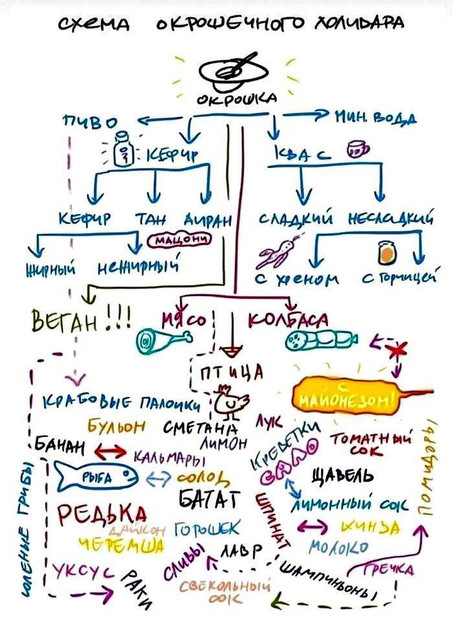 СХЕМА ОКРОШЕЧНОГО ХОЛИВАРА
ОКРОШКА
ПИВО
МИН. ВОДА
КЕФИР
КВАС
КЕФИР ТАН АЙРАН
СЛАДКИЙ НЕСЛАДКИЙ
МАЦОНИ
ЖИРНЫЙ НЕЖИРНЫЙ
С ХРЕНОМ С ГОРЧИЦЕЙ
ВЕГАН!!!
МЯСО КОЛБАСА
ПТИЦА
С МАЙОНЕЗОМ!
КРАБОВЫЕ ПАЛОЧКИ
БУЛЬОН СМЕТАНА ЛУК
ЛИМОН
БАНАН
КАЛЬМАРЫ
КРЕВЕТКИ
ТОМАТНЫЙ
СОК
РЫБА
СОЛОД
ЩАВЕЛЬ
БАТАТ
ЛИМОННЫЙ СОК
ПОМИДОРЫ
СОЛЕНЫЕ ГРИБЫ
РЕДЬКА
ДАЙКОН
ГОРОШЕК
ШПИНАТ
КИНЗА
ЧЕРЕМША
ЛАВР
МОЛОКО
СЛИВЫ
УКСУС
РАКИ
СВЕКОЛЬНЫЙ
СОК
ШАМПИНЬОНЫ
ГРЕЧКА